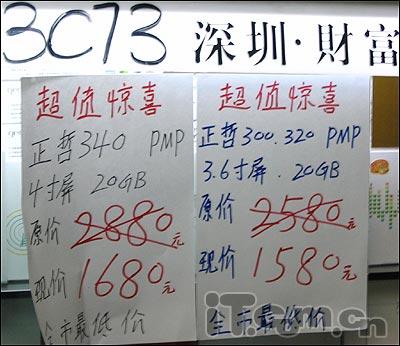 3C73 深圳·財富
超值惊喜
正哲340 PMP
4寸屏 20GB
原价2880元
现价1680元
全市最低价
超值惊喜
正哲300.320 PMP
3.6寸屏.20GB
原价2580元
现价1580元
全市最低价